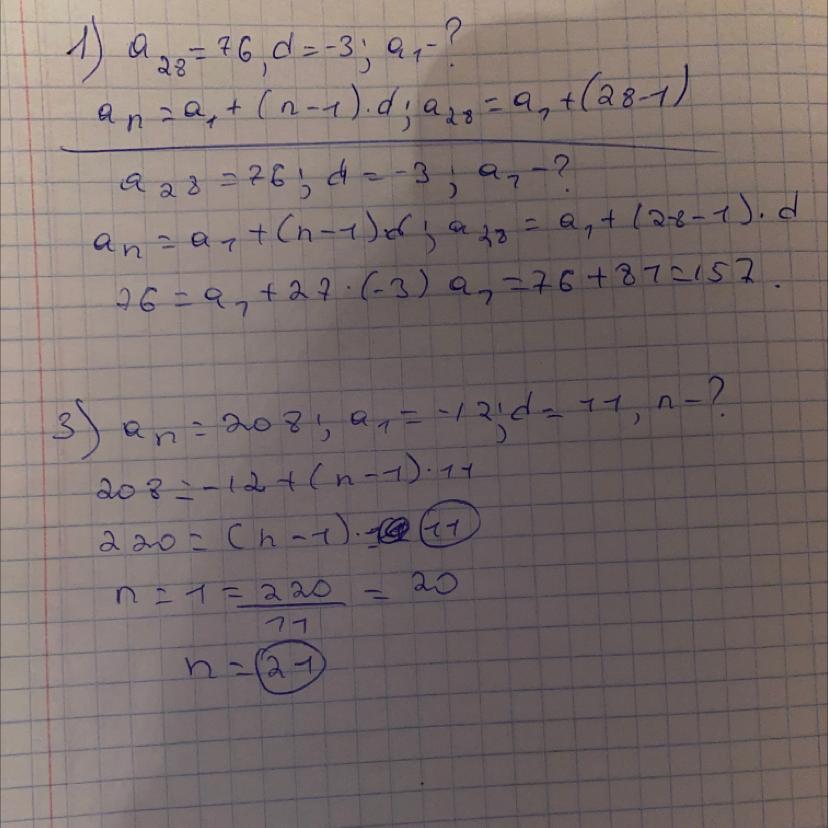 1) a₂₈ = 76, d = -3; a₁ - ?
aₙ = a₁ + (n-1)·d; a₂₈ = a₁ + (28-1)
a₂₈ = 76; d = -3; a₁ - ?
aₙ = a₁ + (n-1)d; a₂₈ = a₁ + (28-1)·d
76 = a₁ + 27·(-3) a₁ = 76 + 81 = 157.
3) aₙ = 208; a₁ = -12; d = 11, n - ?
208 = -12 + (n-1)·11
220 = (n-1)· 11
n = 1 = 220/11 = 20
n = 21